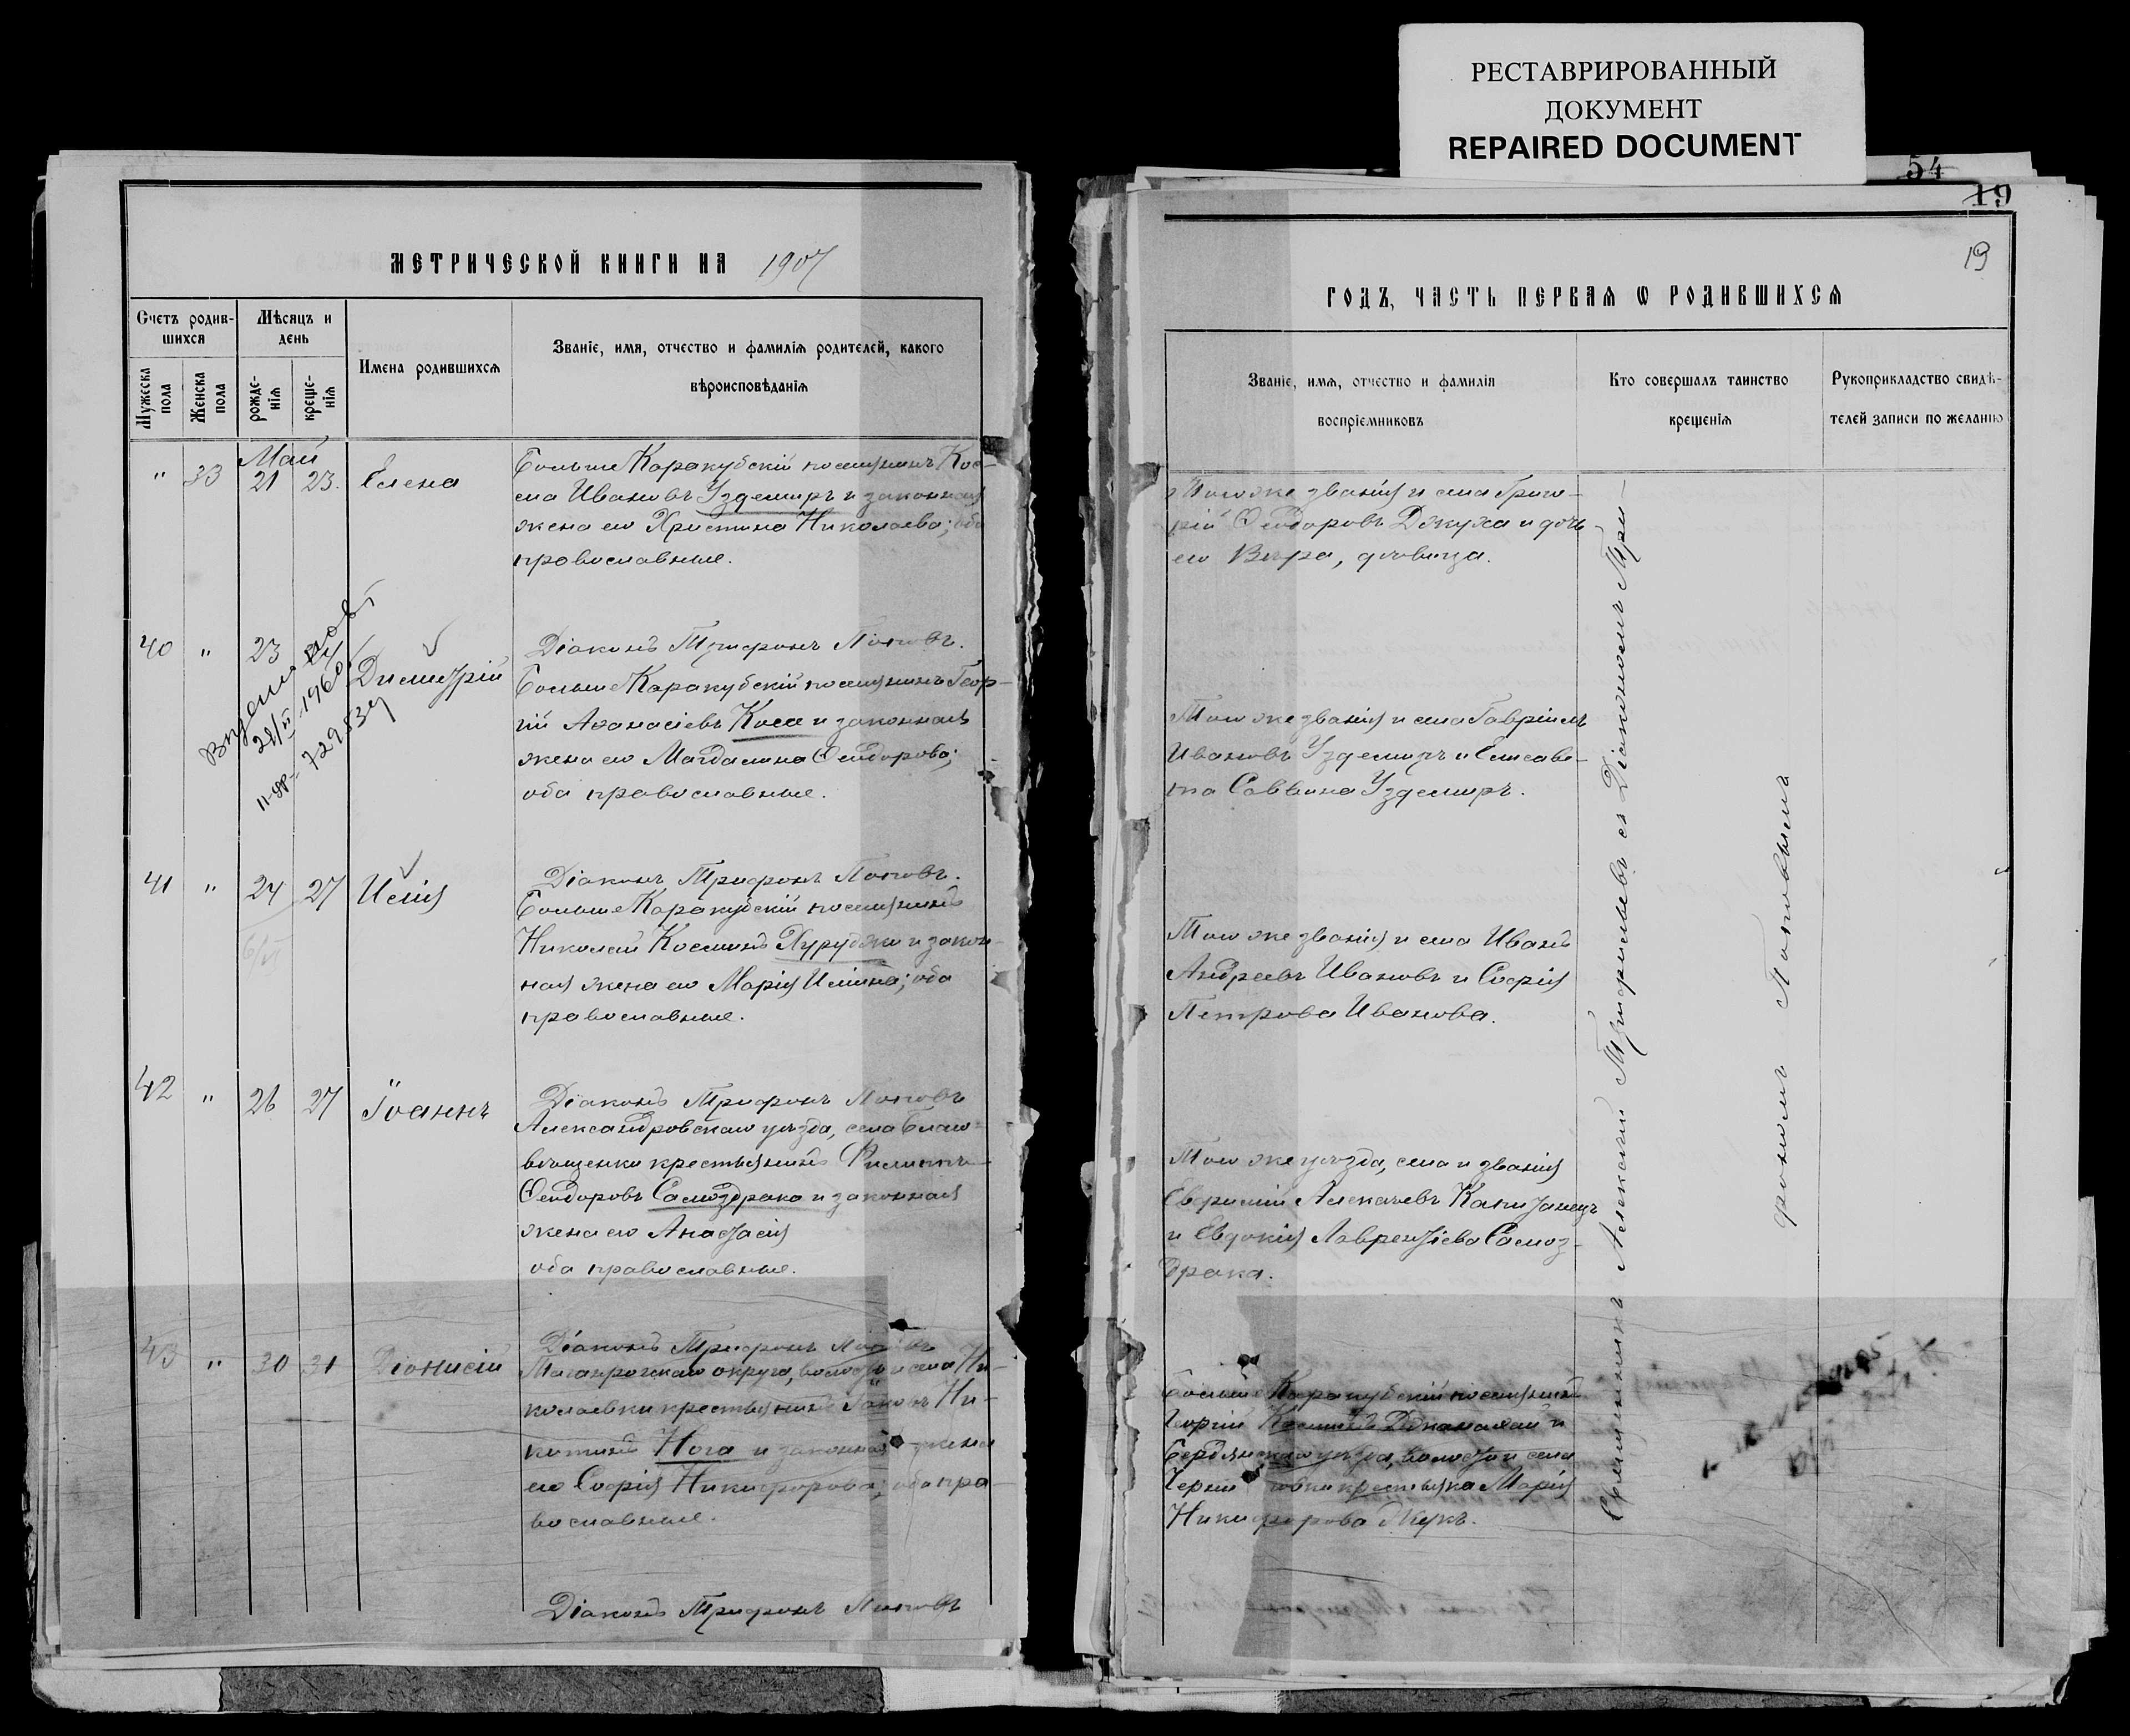 РЕСТАВРИРОВАННЫЙ
ДОКУМЕНТ
REPAIRED DOCUMENT
54
19
МЕТРИЧЕСКОЙ КНИГИ НА 1907
Счетъ родив-
шихся
Мужеска пола
Женска пола
Мѣсяцъ и
день
рожде-
нія
креще-
нія
Имена родившихся
Званіе, имя, отчество и фамилія родителей, какого
вѣроисповѣданія
Май
" 33 21 23. Елена
Больше Каракубскій поселянинъ Кос-
ма Ивановъ Уздемиръ и законная
жена его Христина Николаева; оба
православные.
40 " 23 Димитрій
Діаконъ Трифонъ Поповъ.
Больше Каракубскій поселянинъ Геор-
гій Аѳанасіевъ Коса и законная
жена его Магдалина Ѳеодорова;
оба православные.
28/II 1960
729534
41 " 24 27 Илія
Діаконъ Трифонъ Поповъ.
Больше Каракубскій поселянинъ
Николай Косминъ Хурубжи и закон-
ная жена его Марія Иліина; оба
православные.
42 " 26 27 Іоаннъ
Діаконъ Трифонъ Поповъ
Александровскаго уѣзда, села Благо-
вѣщенки крестьянинъ Филиппъ
Ѳеодоровъ Самоздрака и законная
жена его Анастасія
оба православные.
43 " 30 31 Діонисій
Діаконъ Трифонъ Поповъ
Таганрогскаго округа, волости и села Ни-
колаевки крестьянинъ Іаковъ Ни-
китинъ Нога и законная жена
его Софія Никифорова; оба пра-
вославные.
Діаконъ Трифонъ Поповъ
19
ГОДЪ, ЧАСТЬ ПЕРВАЯ Ѡ РОДИВШИХСЯ
Званіе, имя, отчество и фамилія
воспріемниковъ
Кто совершалъ таинство
крещенія
Рукоприкладство свидѣ-
телей записи по желанію
Того же званія и села Григо-
рій Ѳеодоровъ Джуха и дочь
его Вѣра, дѣвица.
Того же званія и села Гавріилъ
Ивановъ Уздемиръ и Елисаве-
та Саввина Уздемиръ.
Того же званія и села Иванъ
Андреевъ Ивановъ и Софія
Петрова Иванова.
Того же уѣзда, села и званія
Евфимій Алексѣевъ Капитанецъ
и Евдокія Лаврентіева Самоз-
драка.
Больше Каракубскій поселянинъ
Георгій Косминъ и
Бердянскаго уѣзда, волости и села
крестьянка Марія
Никифорова Жукъ.
Священникъ Алексѣй Трифильевъ съ Діакономъ Три-
фономъ Поповымъ